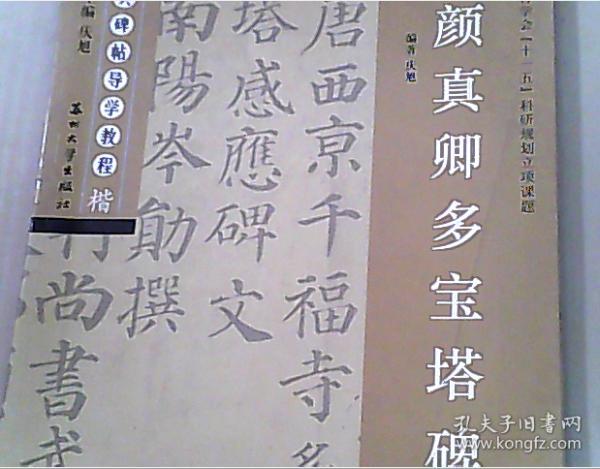 学会「十一五」科研规划立项课题
颜真卿多宝塔碑
编著 庆旭
唐西京千福寺多
塔感應碑文
南陽岑勛撰
行尚書武
碑帖导学教程 楷
编 庆旭
苏州大学出版社
孔夫子旧书网
www.kongfz.com